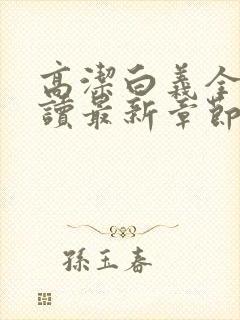 高潔白義全
讀最新章節
孫玉春